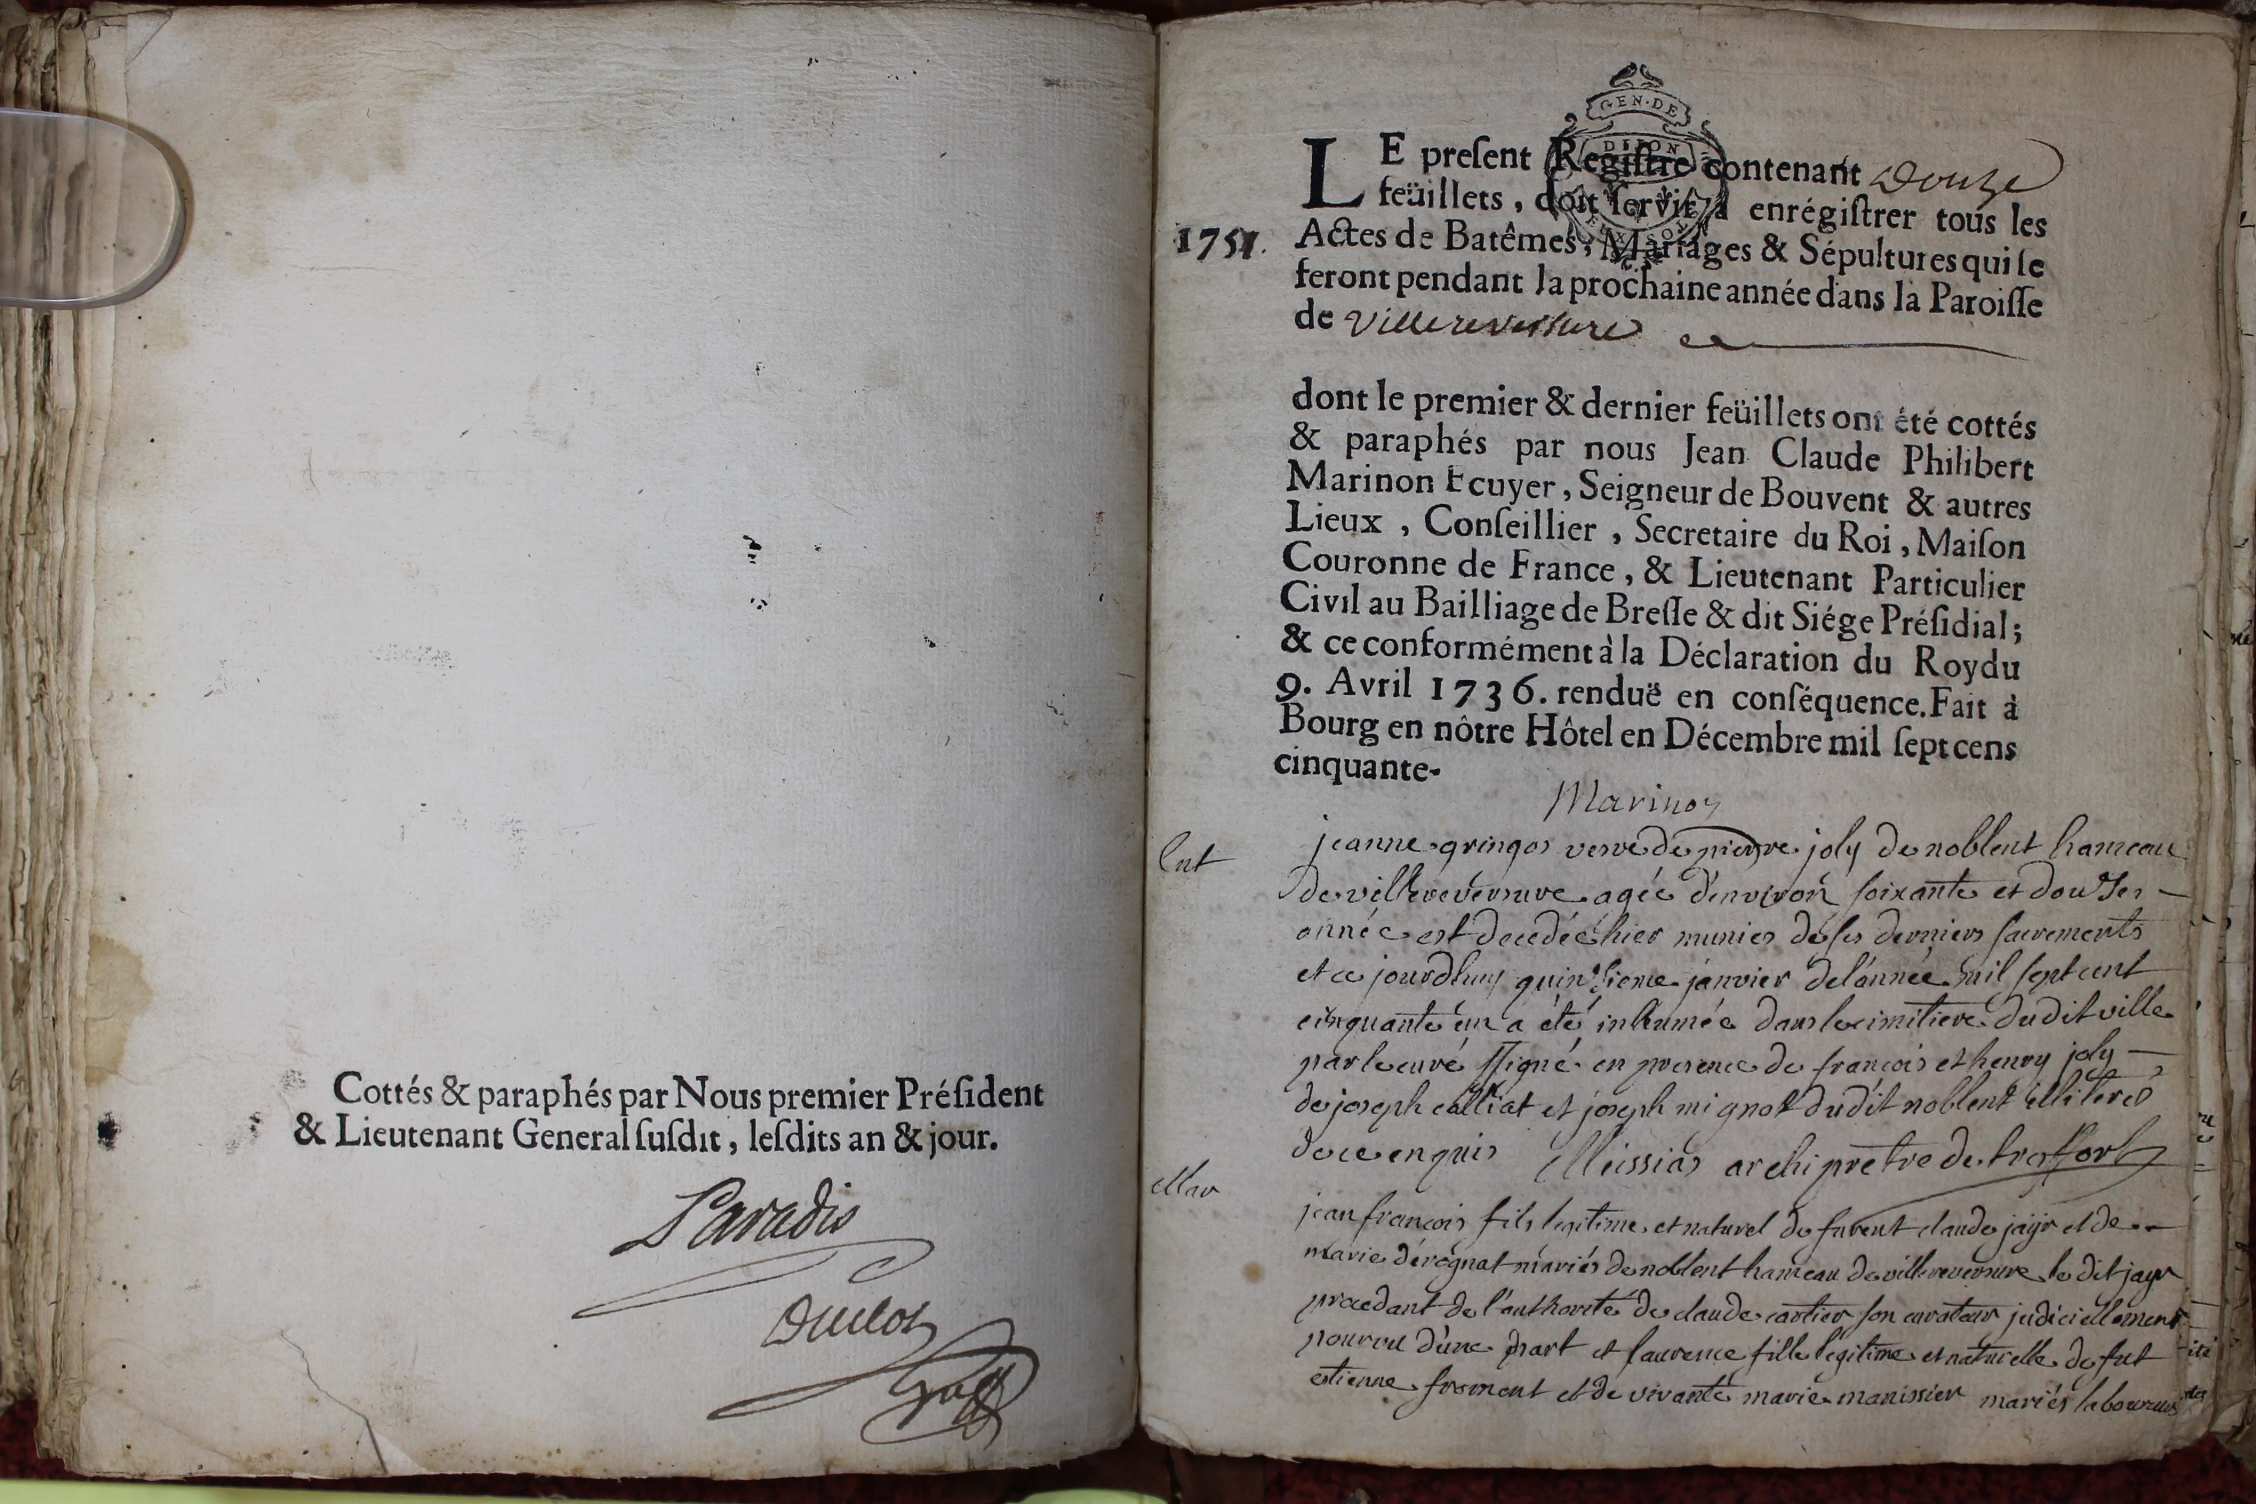 Cottés & paraphés par Nous premier Préſident
& Lieutenant General ſuſdit, leſdits an & jour.
Paradis
Duclos
GEN·DE
DIJON
LE preſent Regiſtre contenant Douze
feüillets, doit ſervir à enrégiſtrer tous les
1751. Actes de Batêmes, Mariages & Sépultures qui ſe
feront pendant la prochaine année dans la Paroiſſe
de Villereversure
dont le premier & dernier feüillets ont été cottés
& paraphés par nous Jean Claude Philibert
Marinon Ecuyer, Seigneur de Bouvent & autres
Lieux, Conſeillier, Secretaire du Roi, Maiſon
Couronne de France, & Lieutenant Particulier
Civil au Bailliage de Breſſe & dit Siége Préſidial;
& ce conformément à la Déclaration du Roy du
9. Avril 1736. renduë en conſéquence. Fait à
Bourg en nôtre Hôtel en Décembre mil ſept cens
cinquante-
Marinon
Ent jeanne gringoz veuve de pierre joly de noblent hameau
de villereversure agée d'environ soixante et douze
année est decedée hier munies de ses derniers sacrements
et ce jourdhuy quinzieme janvier de l'année mil sept cent
cinquante un a été inhumée dans le cimitiere dudit ville
par le curé ssigné en presence de françois et henry joly
de joseph calliat et joseph mignot dudit noblent illiteres
de ce enquis Messias archiprêtre de treffort
Mar jean françois fils legitime et naturel de furent claude jayr et de
marie derognat mariés de noblent hameau de villereversure le dit jayr
procedant de l'authorité de claude cartier son curateur judiciellement
pourvu d'une part et laurence fille legitime et naturelle de fut
estienne froment et de vivante marie manissier mariés laboureurs